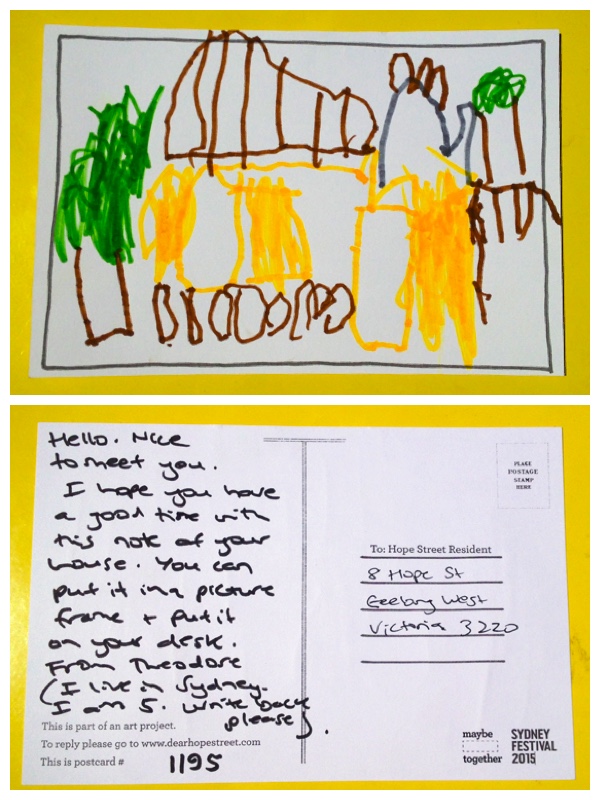 Hello. Nice
to meet you.
I hope you have
a good time with
this note of your
house. You can
put it in a picture
frame + put it
on your desk.
From Theodore
(I live in Sydney.
I am 5. Write back
please).
This is part of an art project.
To reply please go to www.dearhopestreet.com
This is postcard # 1195
PLACE
POSTAGE
STAMP
HERE
To: Hope Street Resident
8 Hope St
Geelong West
Victoria 3220
maybe
together
SYDNEY
FESTIVAL
2015